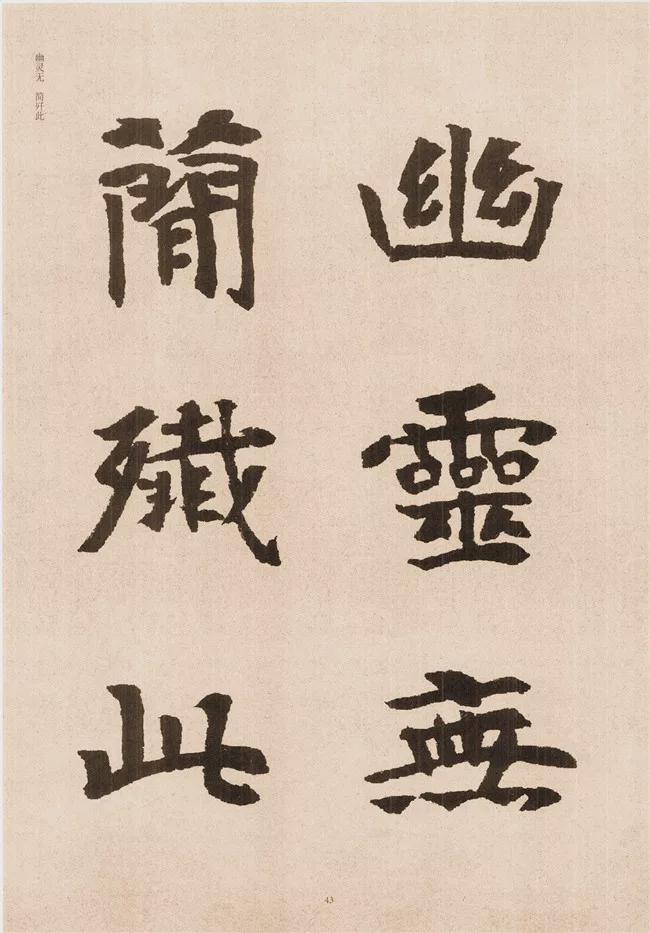 幽靈無
簡殲此
幽灵无 简歼此
43